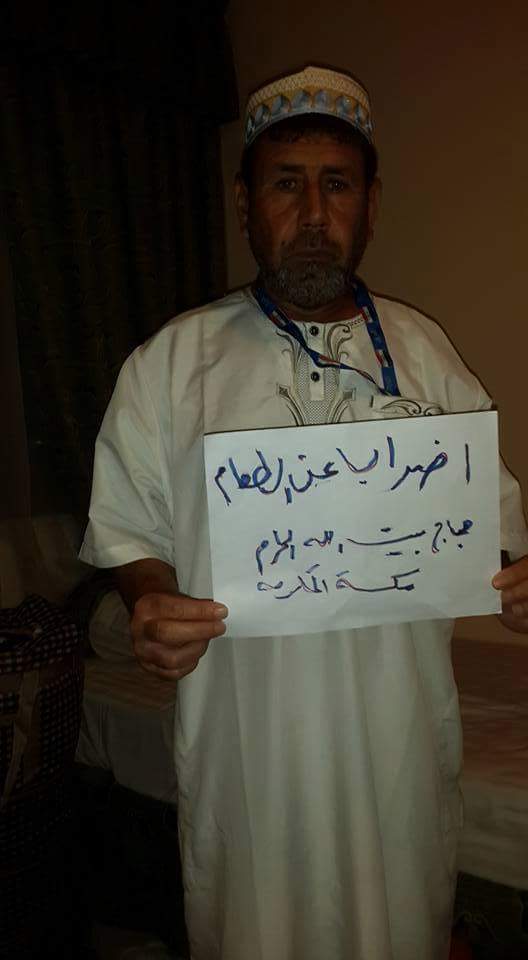 اضرابا عن الطعام
حجاج بيت الله الحرام
مكة المكرمة